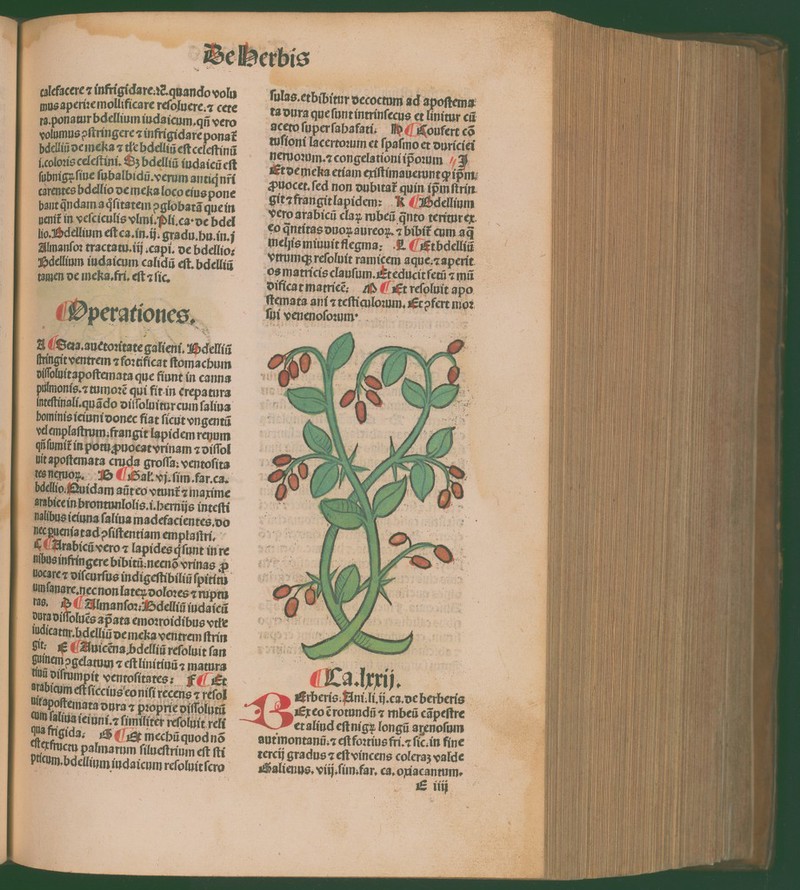 De Herbis
calefacere ⁊ infrigidare.⁊c̄.quando volu
mus aperire mollificare resoluere.⁊ cete
ra.ponatur bdellium iudaicum.qn̄ vero
volumus ꝯstringere ⁊ infrigidare ponat̄
bdelliū de meka ⁊ bdelliū est celestinū
i.coloris celestini. Sꝫ bdelliū iudaicū est
subnigꝝ siue subalbidū.verum antiq̄ nr̄i
carentes bdellio de meka loco eius pone
bant quādam aq̄sitatem ꝯglobatā que in
uenit̄ in vesciculis vlmi.Pli.ca.de bdel
lio.Bdellium est ca.in.ij.gradu.hu.in.j
Almansor tractatu.iij.capi. de bdellio:
Bdellium iudaicum calidū est. bdelliū
tamen de meka.fri. est ⁊ sic.
Operationes.
A Sera.auctoritate galieni. Bdelliū
stringit ventrem ⁊ fortificat stomachum
dissoluit apostemata que fiunt in canna
pulmonis.⁊ tumorē qui fit in crepatura
intestinali.quādo dissoluitur cum saliua
hominis ieiuni donec fiat sicut vngentū
vel emplastrum.frangit lapidem renum
qn̄ sumit̄ in potu ꝓuocat vrinam ⁊ dissol
uit apostemata cruda grossa: ventosita
tes neruoꝝ. B Gal.vj.sim.far.ca.
bdellio.Quidam aūt eo vtunt̄ ⁊ maxime
arabice in bronthnlolis.i.hernijs intesti
nalibus ieiuna saliua madefacientes.do
nec ꝑueniat ad ꝯsistentiam emplastri.
C Arabicū vero ⁊ lapides q̄ sunt in re
nibus infringere bibitū.necnō vrinas ꝓ
uocare ⁊ discursus indigestibiliū spirituū
um sanare.necnon lateꝝ dolores ⁊ ruptu
ras. D Almansor:Bdelliū iudaicū
dura dissoluēs ap̄ata emorroidibus vtile
iudicatur.bdelliū de meka ventrem strin
git: E Auicēna.bdelliū resoluit san
guinem ꝯgelatum ⁊ est linitiuū ⁊ matura
tiuū disrumpit ventositates: F Et
arabicum est siccius eo nisi recens ⁊ resol
uit apostemata dura ⁊ proprie dissolutū
cum saliua ieiuni.⁊ similiter resoluit reli
qua frigida: G Et mechū quod nō
est ex fructu palmarum siluestrium est sti
pticum.bdellium iudaicum resoluit scro
fulas.et bibitur decoctum ad apostema
ta dura que sunt intrinsecus et linitur cū
aceto super sabafati. H Confert cō
tusioni lacertorum et spasmo et duriciei
neruorum.⁊ congelationi ip̄orum J
Et de meka etiam existimauerunt ꝙ ip̄m
ꝓuocet. sed non dubitat̄ quin ip̄m strin
git ⁊ frangit lapidem: K Bdellium
vero arabicū claꝝ rubeū qn̄to teritur ex
eo q̄ntitas duoꝝ aureoꝝ. ⁊ bibit̄ cum aq̄
mellis minuit flegma: L Et bdelliū
vtrumqꝫ resoluit ramicem aque.⁊ aperit
os matricis clausum.Et educit fetū ⁊ mū
dificat matricē: M Et resoluit apo
stemata ani ⁊ testiculorum. Et ꝯfert mor
sui venenosorum.
Ca.lxxij.
BErberis.Ani.li.ij.ca.de berberis
Ex eo ē rotundū ⁊ rubeū cāpestre
et aliud est nigꝝ longū arenosum
aut montanū.⁊ est fortius fri.⁊ sic.in fine
tercij gradus ⁊ est vincens coleraꝫ valde
Galienus.viij.sim.far. ca. oxiacantum.
E iiij